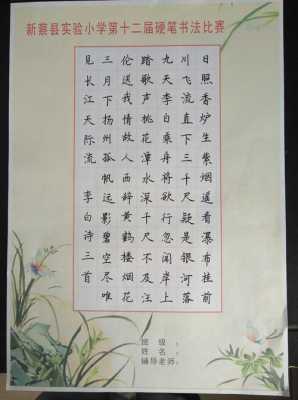 新蔡县实验小学第十二届硬笔书法比赛
日照香炉生紫烟遥看瀑布挂前
川飞流直下三千尺疑是银河落
九天李白乘舟将欲行忽闻岸上
踏歌声桃花潭水深千尺不及汪
伦送我情故人西辞黄鹤楼烟花
三月下扬州孤帆远影碧空尽唯
见长江天际流 李白诗三首
班级：
姓名：
辅导老师：